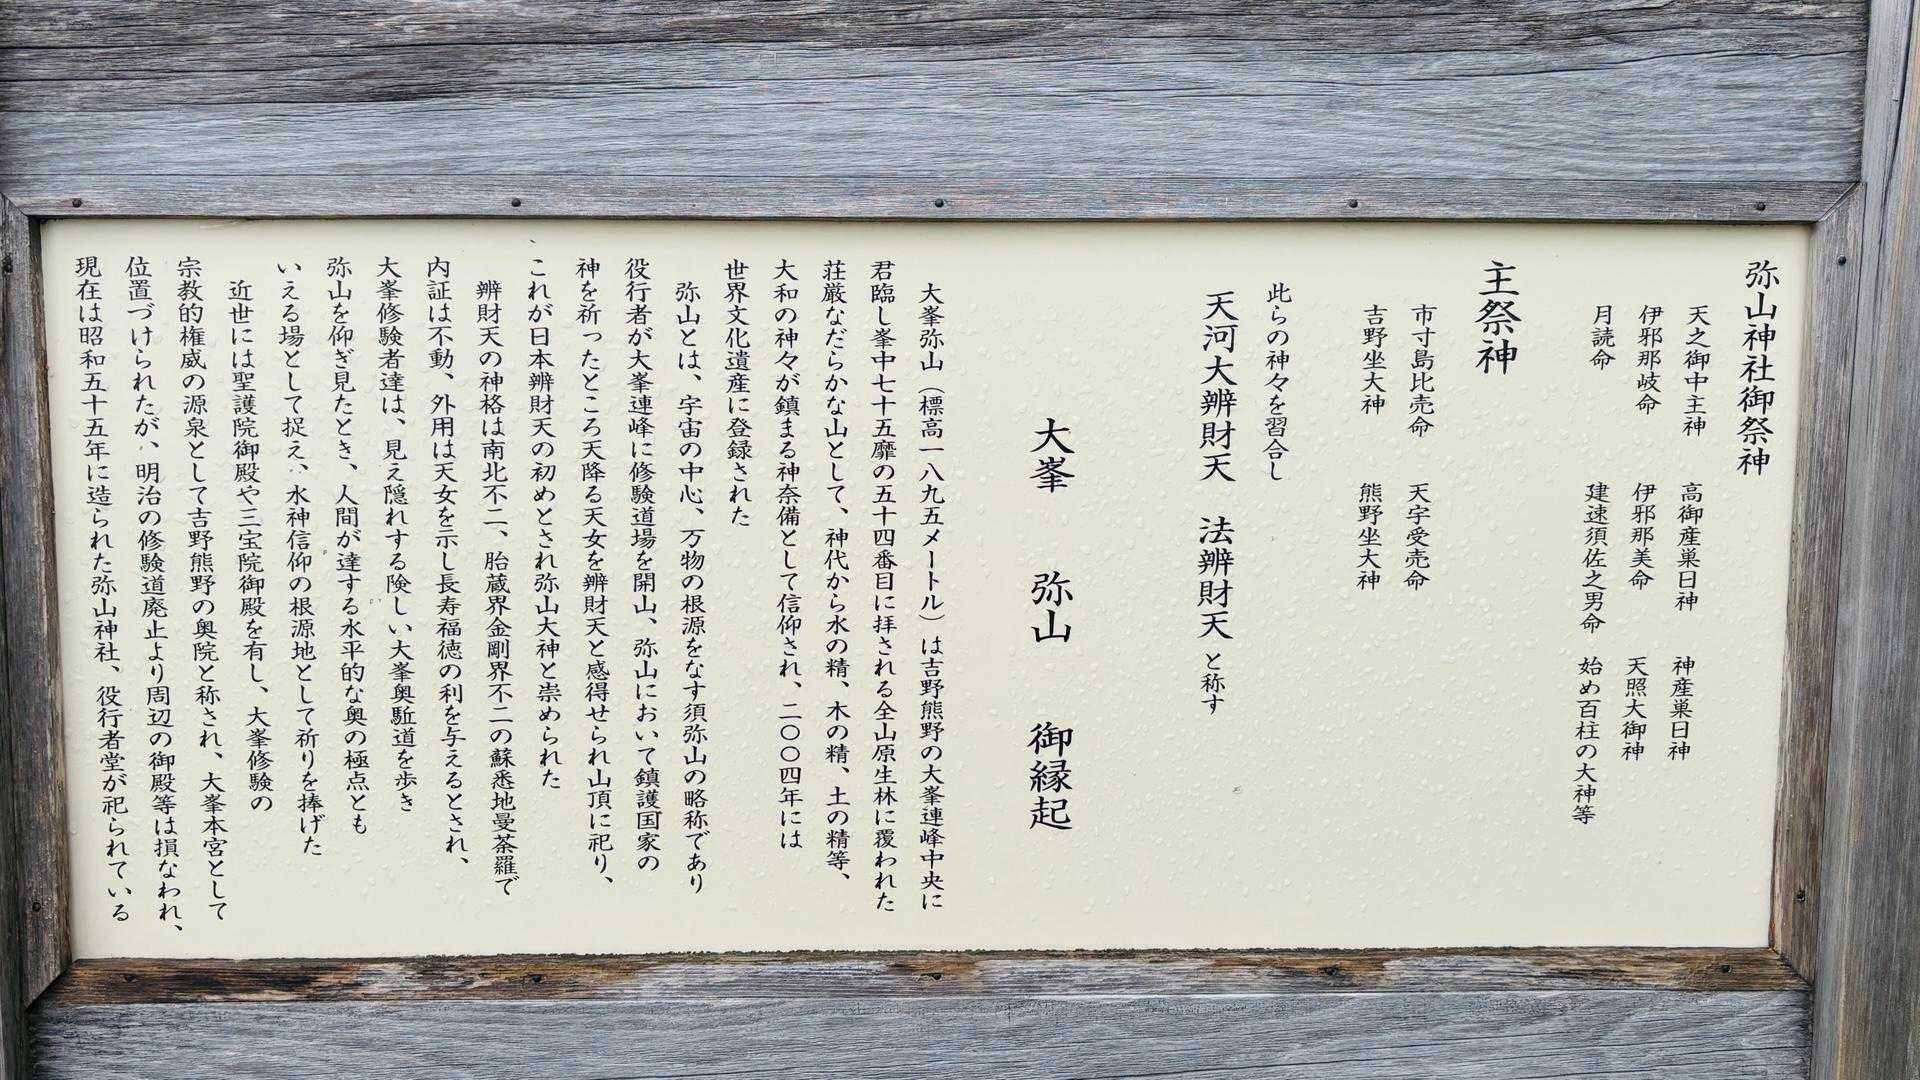 弥山神社御祭神
天之御中主神　高御産巣日神　神産巣日神
伊邪那岐命　伊邪那美命　天照大御神
月読命　建速須佐之男命　始め百柱の大神等
主祭神
市寸島比売命　天宇受売命
吉野坐大神　熊野坐大神
此らの神々を習合し
天河大辨財天　法辨財天　と称す
大峯　弥山　御縁起
大峯弥山（標高一八九五メートル）は吉野熊野の大峯連峰中央に
君臨し峯中七十五靡の五十四番目に拝される全山原生林に覆われた
荘厳なだらかな山として、神代から水の精、木の精、土の精等、
大和の神々が鎮まる神奈備として信仰され、二〇〇四年には
世界文化遺産に登録された
弥山とは、宇宙の中心、万物の根源をなす須弥山の略称であり
役行者が大峯連峰に修験道場を開山、弥山において鎮護国家の
神を祈ったところ天降る天女を辨財天と感得せられ山頂に祀り、
これが日本辨財天の初めとされ弥山大神と崇められた
辨財天の神格は南北不二、胎蔵界金剛界不二の蘇悉地曼荼羅で
内証は不動、外用は天女を示し長寿福徳の利を与えるとされ、
大峯修験者達は、見え隠れする険しい大峯奥駈道を歩き
弥山を仰ぎ見たとき、人間が達する水平的な奥の極点とも
いえる場として捉え、水神信仰の根源地として祈りを捧げた
近世には聖護院御殿や三宝院御殿を有し、大峯修験の
宗教的権威の源泉として吉野熊野の奥院と称され、大峯本宮として
位置づけられたが、明治の修験道廃止より周辺の御殿等は損なわれ、
現在は昭和五十五年に造られた弥山神社、役行者堂が祀られている